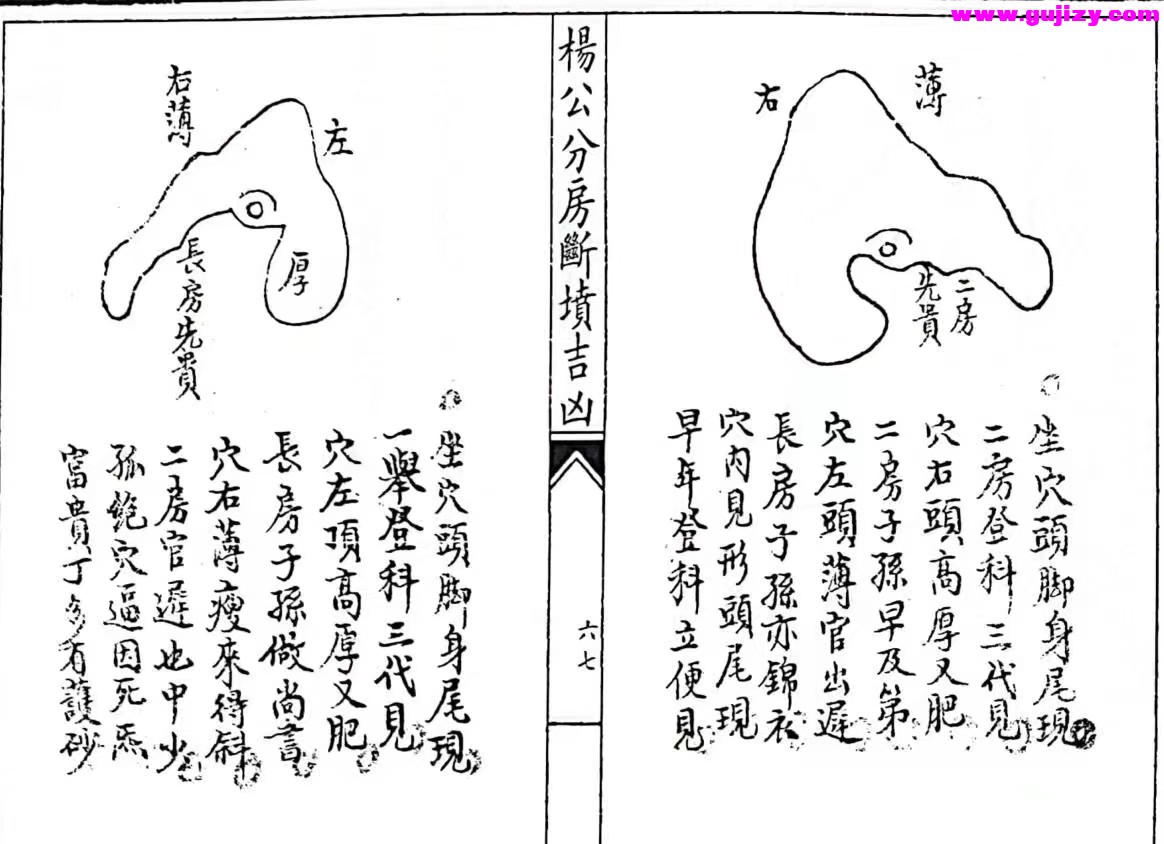 www.gujizy.com
右
薄
二房
先貴
坐穴頭脚身尾現
二房登科三代見
穴右頭高厚又肥
二房子孫早及第
穴左頭薄官出遲
長房子孫亦錦衣
穴内見形頭尾現
早年登科立便見
楊公分房斷墳吉凶
六七
右薄
左
厚
長房先貴
坐穴頭脚身尾現
一舉登科三代見
穴左項高厚又肥
長房子孫做尚書
穴右薄瘦來得斜
二房官遲也中少
孤飽穴逼因死炁
富貴丁多有護砂